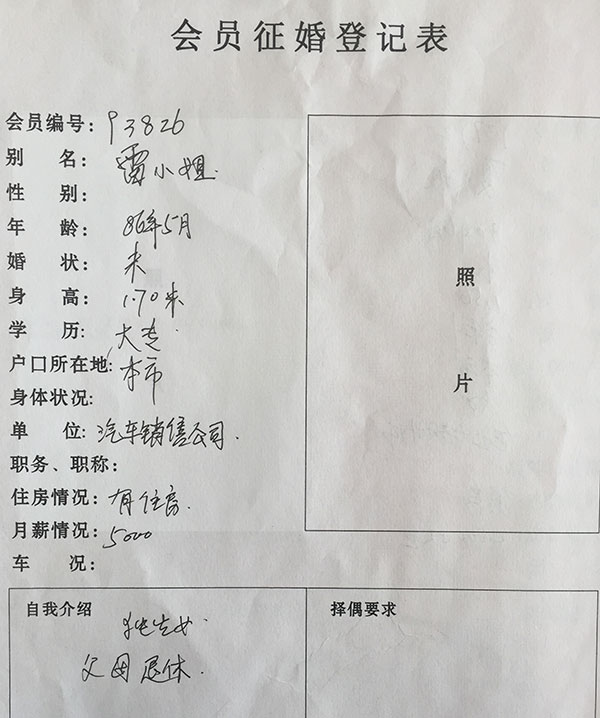 会员征婚登记表
会员编号：93826
别 名：雷小姐.
性 别：
年 龄：86年5月
婚 状：未
身 高：1.70米
学 历：大专.
户口所在地:本市
身体状况:
单 位:汽车销售公司.
职务、职称：
住房情况：有住房.
月薪情况：5000
车 况：
照
片
自我介绍
独生女
父母退休.
择偶要求